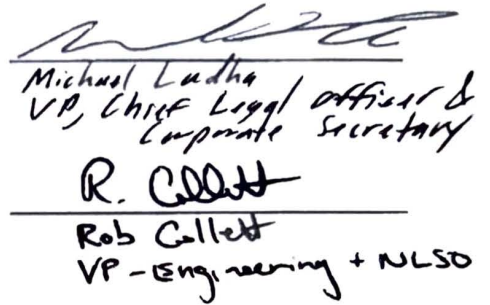 Michael Ladha
VP, Chief Legal Officer &
Corporate Secretary
R. Collett
Rob Collett
VP-Engineering + NLSO